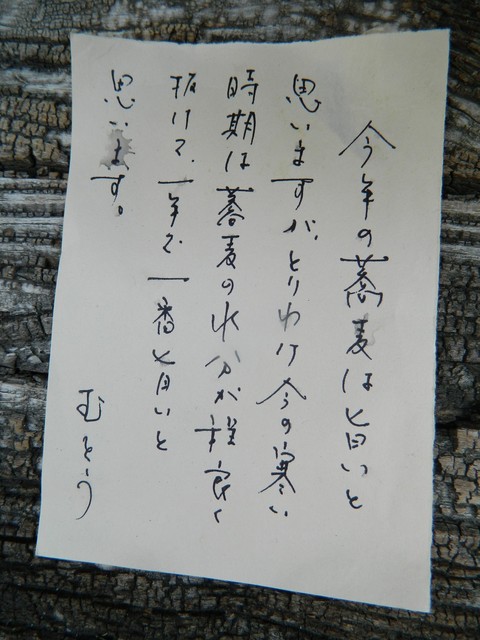 今年の蕎麦は旨いと
思いますが、とりわけ今の寒い
時期は蕎麦の水分が程良く
抜けて、一年で一番旨いと
思います。
むとう